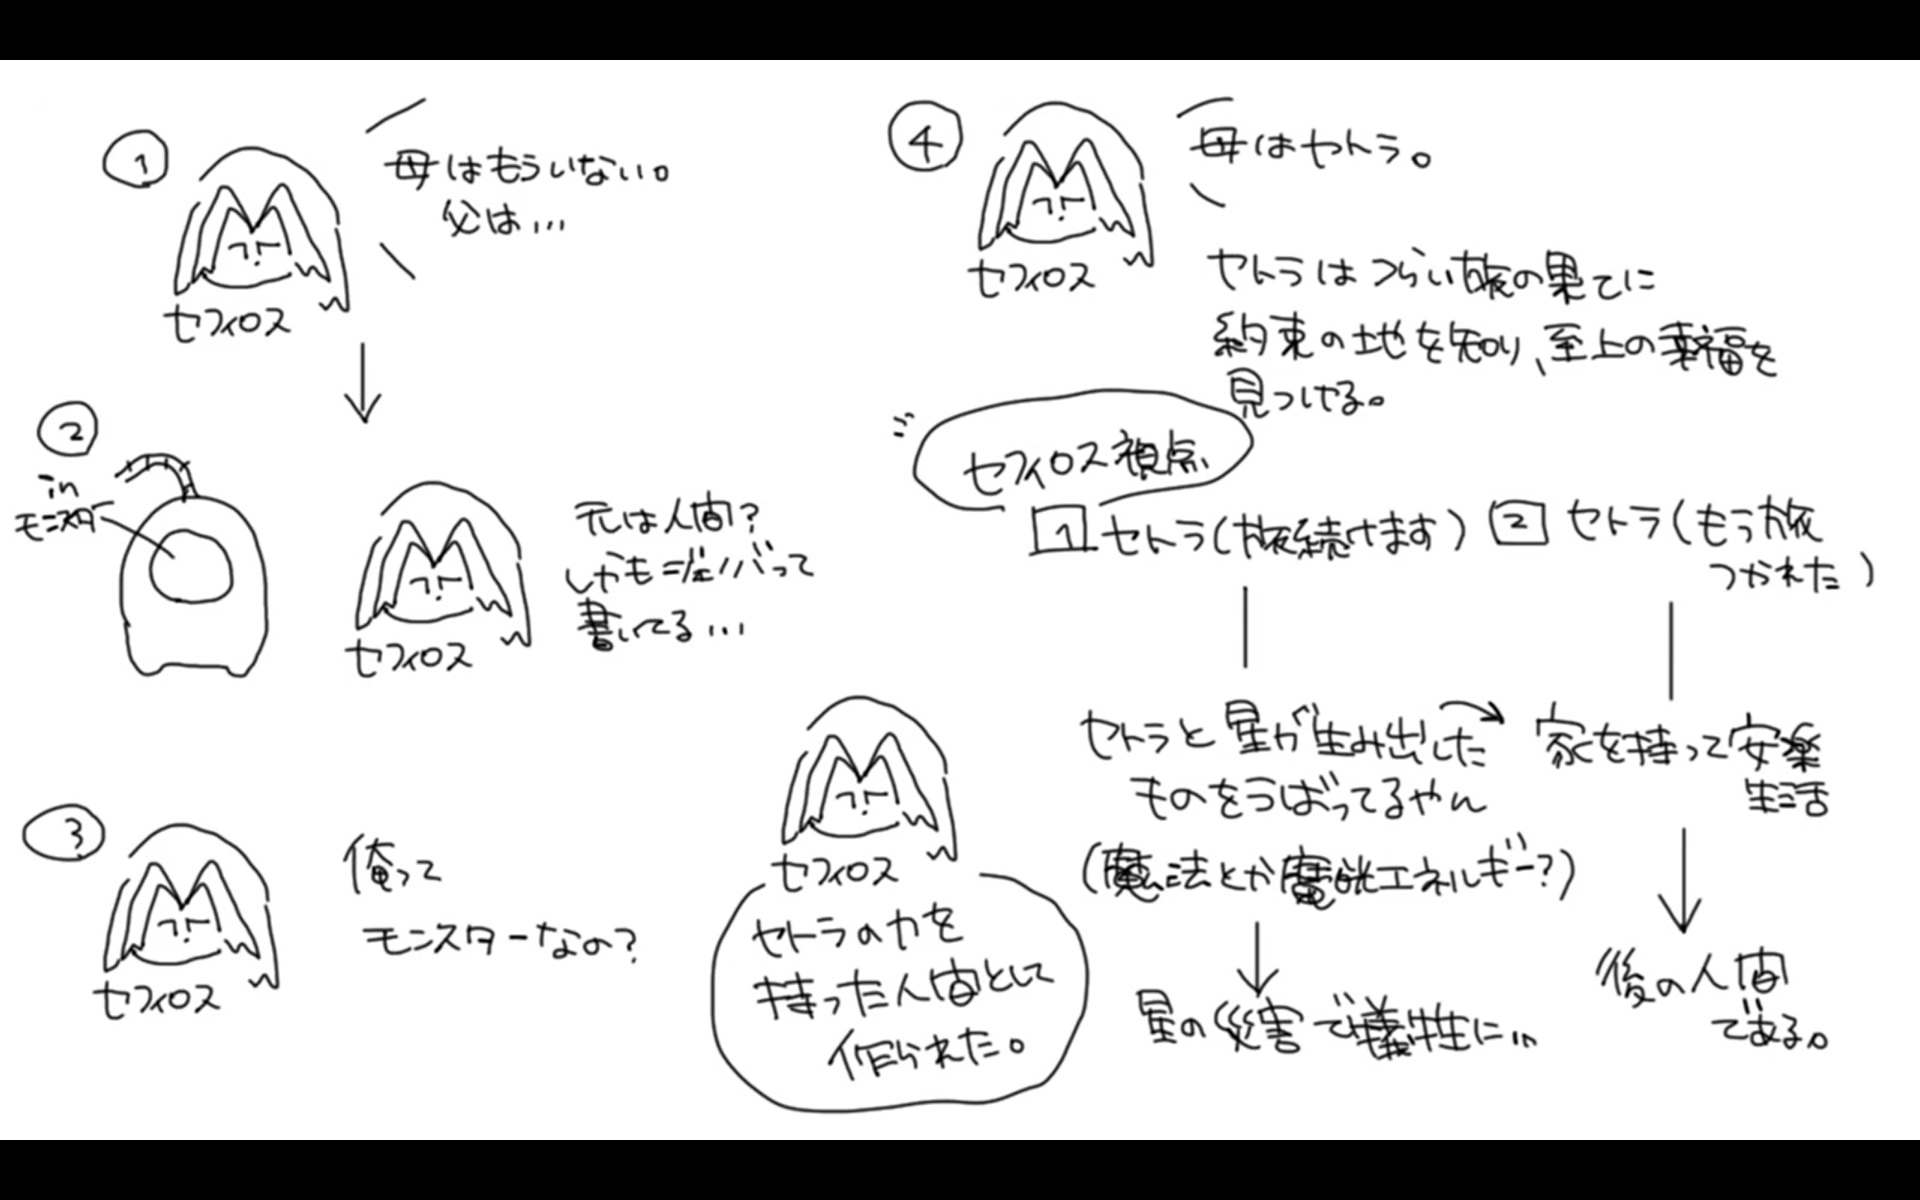 ①
母はもういない。
父は…
セフィロス
②
in
モンスター
元は人間?
しかもジェノバって
書いてる…
セフィロス
③
俺って
モンスターなの?
セフィロス
④
母はセトラ。
セフィロス
セトラはつらい旅の果てに
約束の地を知り、至上の幸福を
見つける。
セフィロス視点
1 セトラ(旅続けます)
2 セトラ(もう旅
つかれた)
セトラと星が生み出した
ものをうばってるやん
(魔法とか魔晄エネルギー?)
星の災害で犠牲に…
家を持って安楽
生活
後の人間
である。
セフィロス
セトラの力を
持った人間として
作られた。